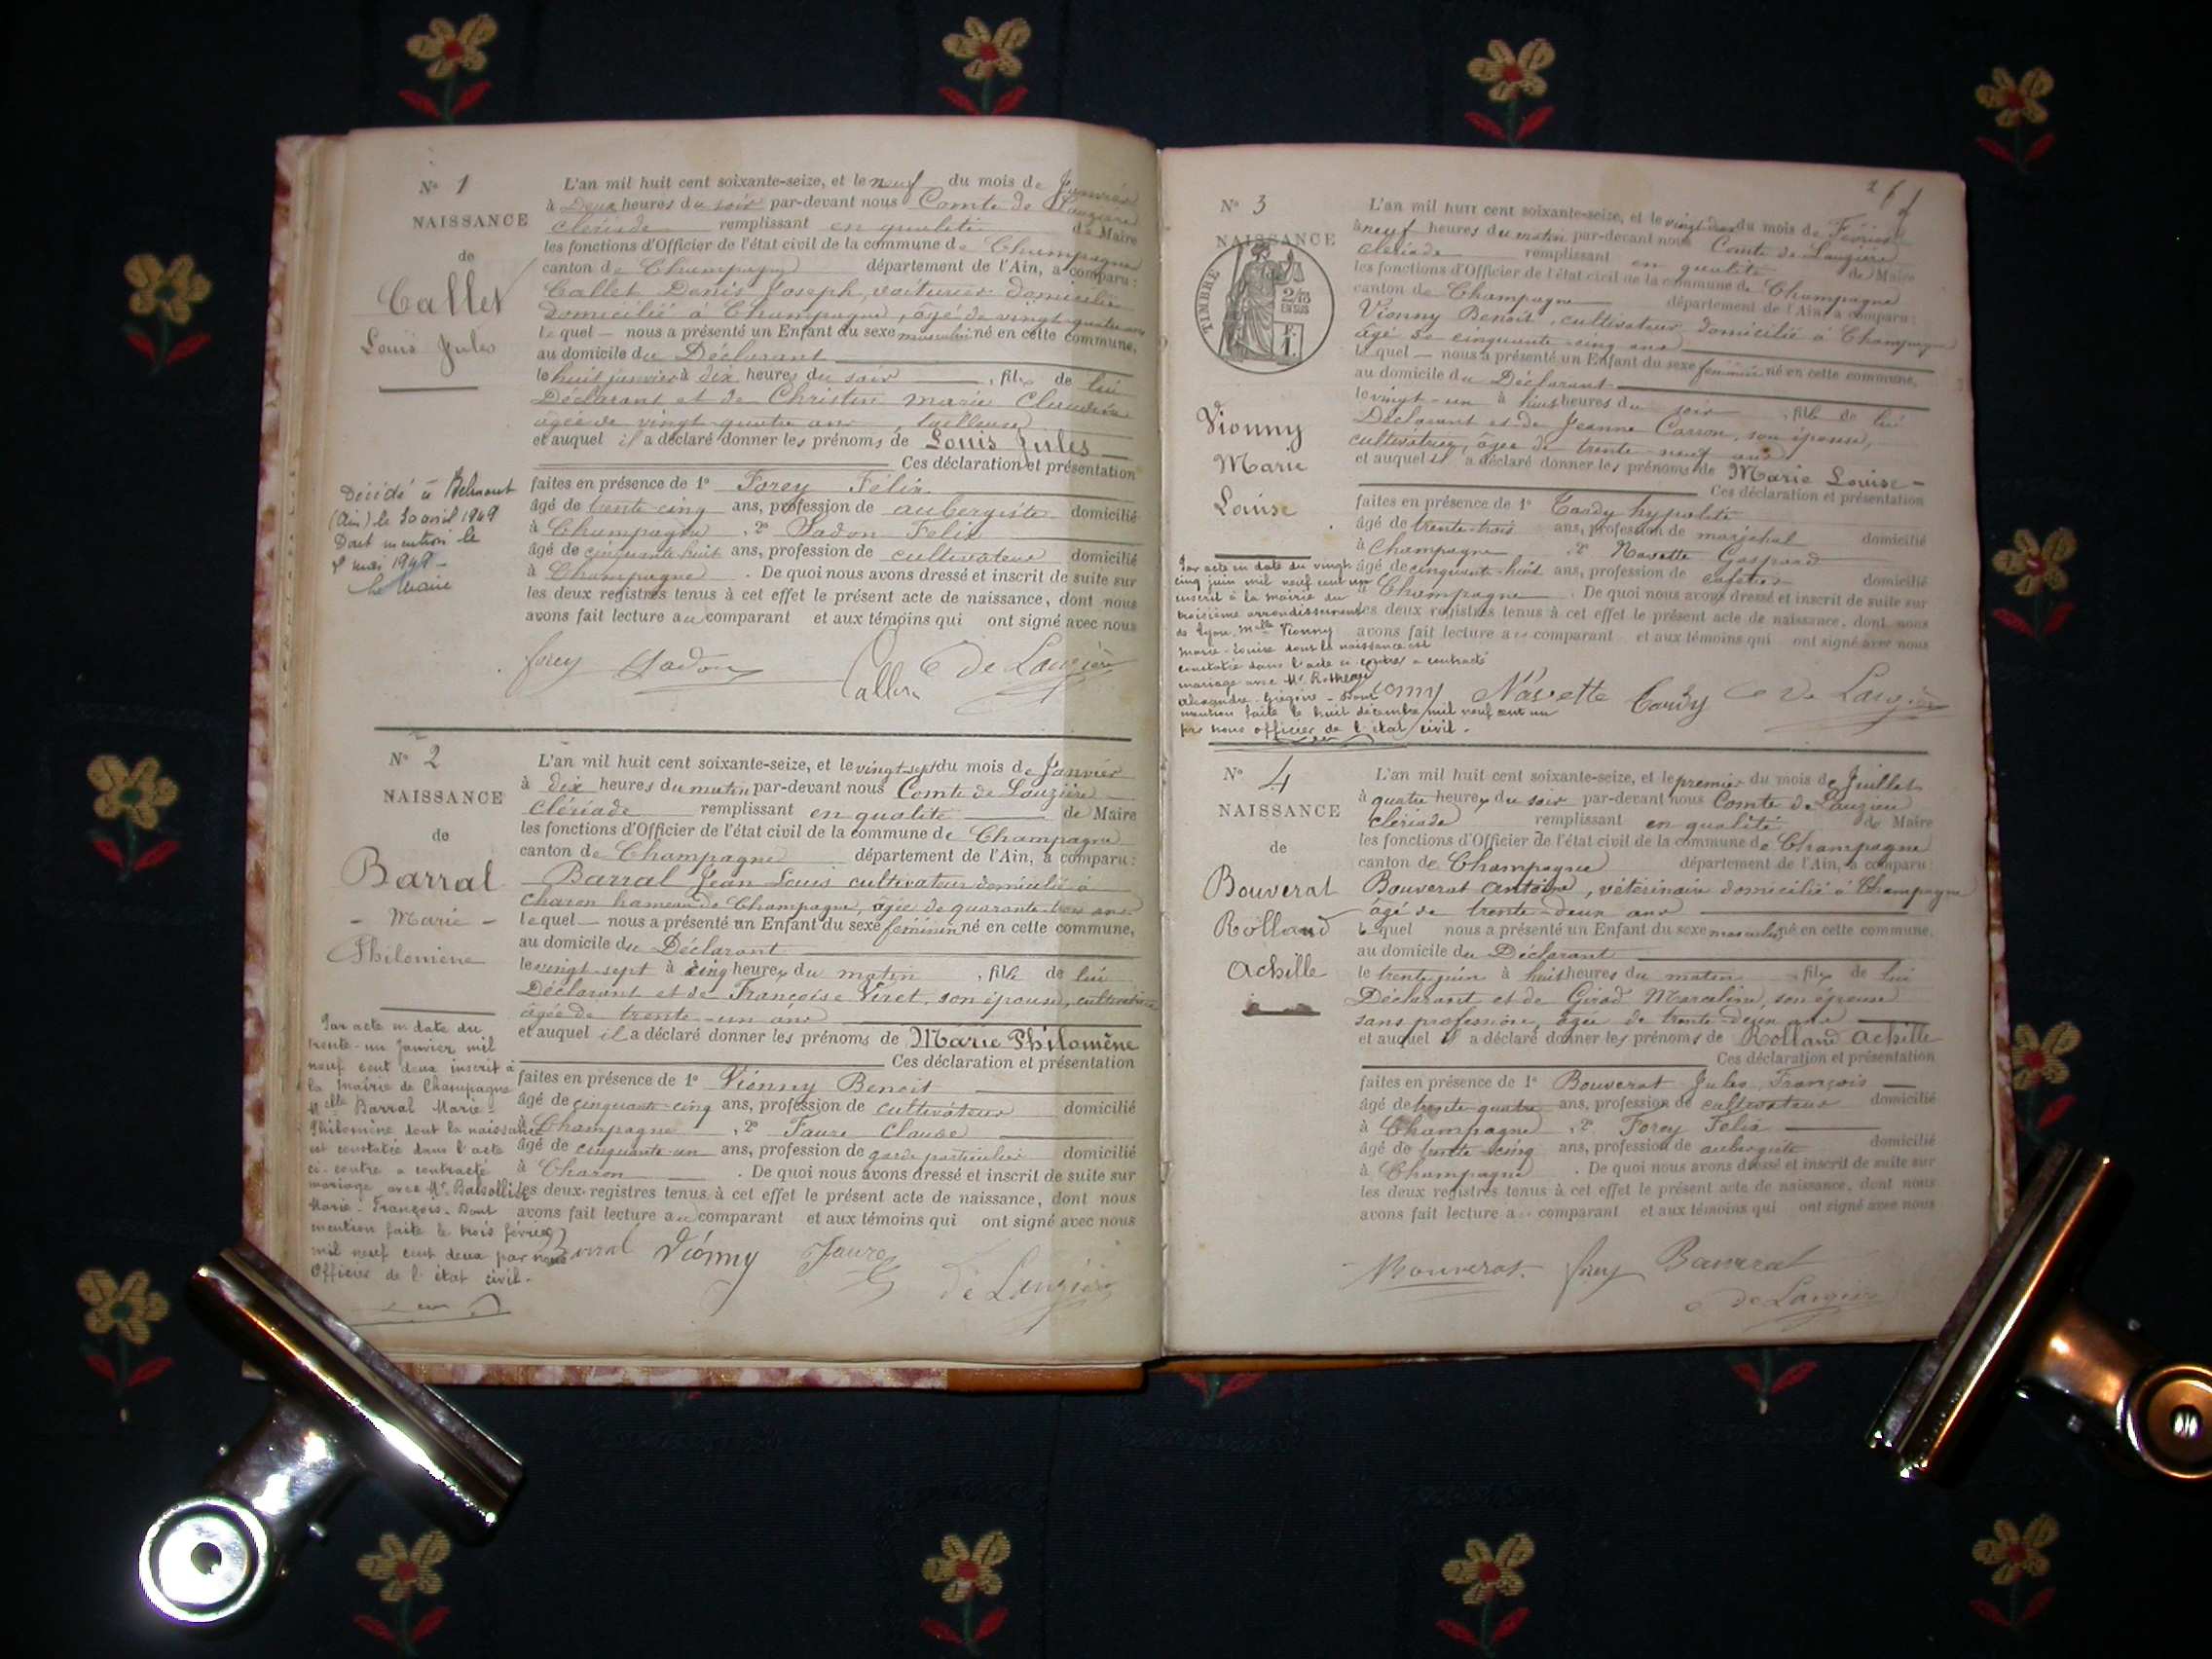 N° 1
NAISSANCE
de
Callet
Louis Jules
Décédé à Belmont
(Ain) le 30 avril 1949
Dont mention le
mai 1949 -
Le Maire
L'an mil huit cent soixante-seize, et le neuf du mois de Janvier
à Deux heures du soir par-devant nous Comte de Lauzière
clériade remplissant en qualité de Maire
les fonctions d'Officier de l'état civil de la commune de Champagne
canton de Champagne département de l'Ain, a comparu:
Callet Denis Joseph, voiturier domicilié
domicilié à Champagne, âgé de vingt-quatre ans
lequel — nous a présenté un Enfant du sexe masculin né en cette commune,
au domicile du Déclarant
le huit janvier à dix heures du soir, fils de lui
Déclarant et de Christin Marie Claudine
âgée de vingt-quatre ans, tailleuse
et auquel il a déclaré donner les prénoms de Louis Jules
Ces déclaration et présentation
faites en présence de 1° Forey Félix
âgé de trente-cinq ans, profession de aubergiste domicilié
à Champagne, 2° Sadon Felix
âgé de cinquante huit ans, profession de cultivateur domicilié
à Champagne. De quoi nous avons dressé et inscrit de suite sur
les deux registres tenus à cet effet le présent acte de naissance, dont nous
avons fait lecture au comparant et aux témoins qui ont signé avec nous
forey Sadon Callet C de Lauzière
N° 2
NAISSANCE
de
Barral
- Marie -
Philomène
Par acte en date du
trente-un Janvier mil
neuf cent deux inscrit à
la Mairie de Champagne
Melle Barral Marie-
Philomène dont la naissance
est constatée dans l'acte
ci-contre a contracté
mariage avec Mr
Marie-François. Dont
mention faite le trois février
mil neuf cent deux par nous
Officier de l'état civil.
L'an mil huit cent soixante-seize, et le vingt-sept du mois de Janvier
à dix heures du matin par-devant nous Comte de Lauzière
clériade remplissant en qualité de Maire
les fonctions d'Officier de l'état civil de la commune de Champagne
canton de Champagne département de l'Ain, a comparu:
Barral Jean Louis cultivateur domicilié à
charon hameau de Champagne, âgé de quarante-trois ans
lequel — nous a présenté un Enfant du sexe féminin né en cette commune,
au domicile du Déclarant
le vingt-sept à cinq heures du matin, fille de lui
Déclarant et de Françoise Viret, son épouse, cultivatrice
âgée de trente-un ans
et auquel il a déclaré donner les prénoms de Marie Philomène
Ces déclaration et présentation
faites en présence de 1° Vionny Benoit
âgé de cinquante-cinq ans, profession de cultivateur domicilié
à Champagne, 2° Faure Claude
âgé de cinquante-un ans, profession de garde particulier domicilié
à Charon. De quoi nous avons dressé et inscrit de suite sur
les deux registres tenus à cet effet le présent acte de naissance, dont nous
avons fait lecture au comparant et aux témoins qui ont signé avec nous
Barral Vionny Faure de Lauzière
N° 3
NAISSANCE
TIMBRE
2/10
EN SUS
Vionny
Marie
Louise
Par acte en date du vingt
cinq juin mil neuf cent un
inscrit à la mairie du
troisième arrondissement
de Lyon, Melle Vionny
Marie-Louise dont la naissance est
constatée dans l'acte ci-contre a contracté
mariage avec Mr
Alexandre-Grégoire - Dont
mention faite le huit décembre mil neuf cent un
par nous officier de l'état civil.
L'an mil huit cent soixante-seize, et le vingt-deux du mois de Février
à neuf heures du matin par-devant nous Comte de Lauzière
clériade remplissant en qualité de Maire
les fonctions d'Officier de l'état civil de la commune de Champagne
canton de Champagne département de l'Ain, a comparu:
Vionny Benoit, cultivateur, domicilié à Champagne
âgé de cinquante-cinq ans
lequel — nous a présenté un Enfant du sexe féminin né en cette commune,
au domicile du Déclarant
le vingt-un à huit heures du soir, fille de lui
Déclarant et de Jeanne Carron, son épouse,
cultivatrice, âgée de trente-neuf ans
et auquel il a déclaré donner les prénoms de Marie Louise -
Ces déclaration et présentation
faites en présence de 1° Tardy hypolite
âgé de trente-trois ans, profession de maréchal domicilié
à Champagne, 2° Navette Gaspard
âgé de cinquante-huit ans, profession de cafetier domicilié
à Champagne. De quoi nous avons dressé et inscrit de suite sur
les deux registres tenus à cet effet le présent acte de naissance, dont nous
avons fait lecture au comparant et aux témoins qui ont signé avec nous
Vionny Navette Tardy C de Lauzière
N° 4
NAISSANCE
de
Bouverat
Rolland
Achille
L'an mil huit cent soixante-seize, et le premier du mois de Juillet
à quatre heures du soir par-devant nous Comte de Lauzière
clériade remplissant en qualité de Maire
les fonctions d'Officier de l'état civil de la commune de Champagne
canton de Champagne département de l'Ain, a comparu:
Bouverat Antoine, vétérinaire domicilié à Champagne
âgé de trente-deux ans
lequel nous a présenté un Enfant du sexe masculin né en cette commune,
au domicile du Déclarant
le trente juin à huit heures du matin, fils de lui
Déclarant et de Girod Marceline, son épouse
sans profession, âgée de trente-deux ans
et auquel il a déclaré donner les prénoms de Rolland Achille
Ces déclaration et présentation
faites en présence de 1° Bouverat Jules François
âgé de trente-quatre ans, profession de cultivateur domicilié
à Champagne, 2° Forey Felix
âgé de trente-cinq ans, profession de aubergiste domicilié
à Champagne. De quoi nous avons dressé et inscrit de suite sur
les deux registres tenus à cet effet le présent acte de naissance, dont nous
avons fait lecture au comparant et aux témoins qui ont signé avec nous
Bouverat forey Bouverat
C de Lauzière